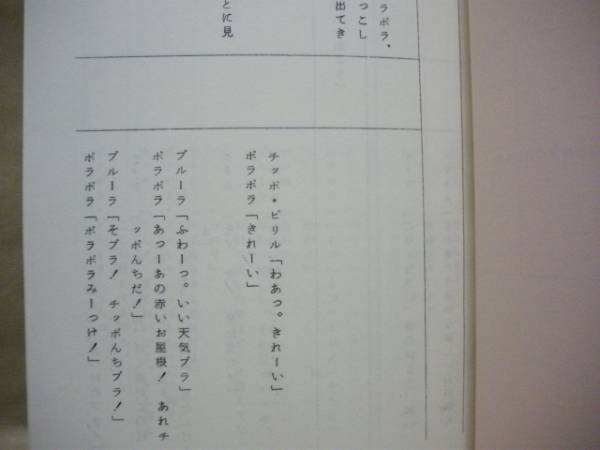 ラボラ、
っこし
出てき
とに見
チッポ・ピリル「わあっ。きれーい」
ポラポラ「きれーい」
プルーラ「ふわーっ。いい天気プラ」
ポラポラ「あっーあの赤いお屋根！　あれチ
ッポんちだ！」
プルーラ「そプラ！　チッポんちプラ！」
ポラポラ「ポラポラみーつけ！」